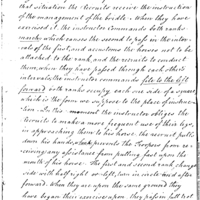 that situation the recruits receive the instruction
of the management of the bridle. When they have
exercised it, the instructor commands both ranks
march, which causes the second to pass in the inter-
vals of the first and accustoms the horses not to be
attached to the rank, and the recruits to conduct
them, when they have passed through each others
intervals, the instructor commands file to the left
forward both ranks occupy each one side of a square
which is the form we suppose to the place of instruc-
tion. In this moment the instructor obliges the
recruits to make a more frequent use of their legs,
in approaching them to his horse. the recruit pull
down his hands, prevents the trooper from re-
ceiving any assistance from pulling fast upon the
mouth of his horse. The first and second rank change
side with half right or left, turn in circle and after
forward. When they are upon the same ground they
have began their exercise upon, they pass in full trot